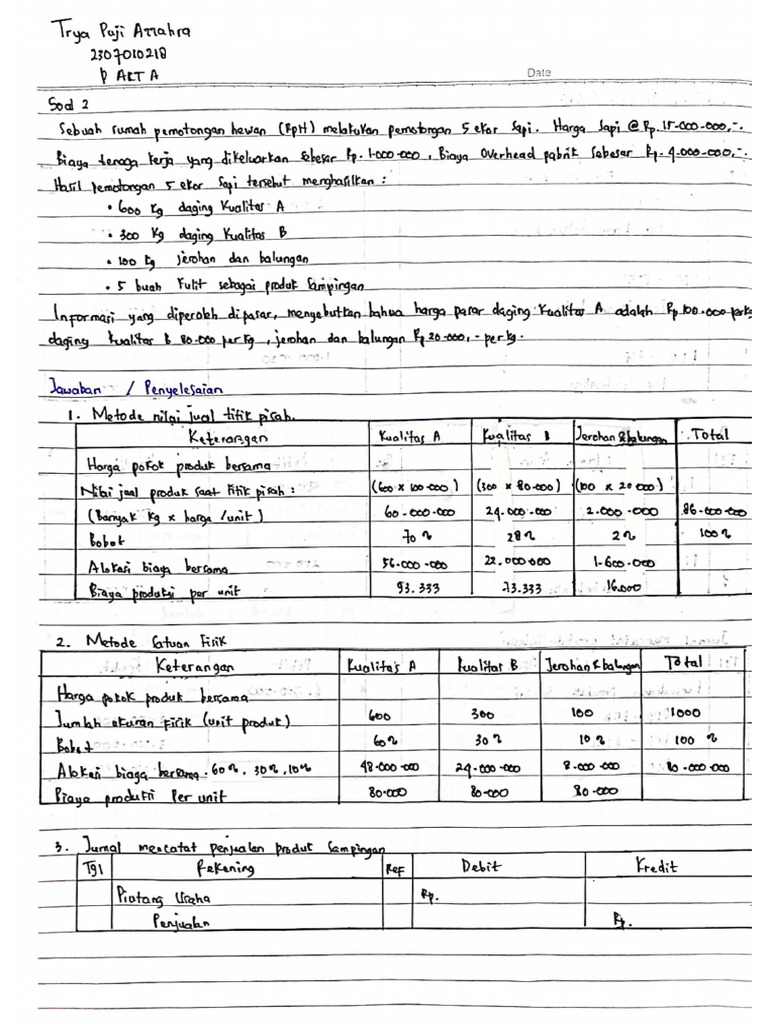 Trya Puji Azzahra
2307010218
D AKT A
Date
Soal 2
Sebuah rumah pemotongan hewan (RPH) melakukan pemotongan 5 ekor sapi. Harga sapi @Rp. 15.000.000,-.
Biaya tenaga kerja yang dikeluarkan sebesar Rp. 1.000.000, Biaya Overhead pabrik sebesar Rp. 4.000.000,-.
Hasil pemotongan 5 ekor sapi tersebut menghasilkan :
• 600 Kg daging Kualitas A
• 300 Kg daging Kualitas B
• 100 Kg jerohan dan balungan
• 5 buah Kulit sebagai produk sampingan
Informasi yang diperoleh dipasar, menyebutkan bahwa harga pasar daging Kualitas A adalah Rp.100.000 perkg
daging kualitas B 80.000 per kg, jerohan dan balungan Rp 20.000,- per kg.
Jawaban / Penyelesaian
1. Metode nilai jual titik pisah.
Keterangan Kualitas A Kualitas B Jerohan & balungan Total
Harga pokok produk bersama
Nilai jual produk saat titik pisah : (600 x 100.000) (300 x 80.000) (100 x 20.000)
(Banyak kg x harga /unit) 60.000.000 24.000.000 2.000.000 86.000.000
Bobot 70% 28% 2% 100%
Alokasi biaya bersama 56.000.000 22.000.000 1.600.000
Biaya produksi per unit 93.333 73.333 16.000
2. Metode Satuan Fisik
Keterangan Kualitas A Kualitas B Jerohan & balungan Total
Harga pokok produk bersama
Jumlah ukuran fisik (unit produk) 600 300 100 1000
Bobot 60% 30% 10% 100 %
Alokasi biaya bersama . 60%, 30%, 10% 48.000.000 24.000.000 8.000.000 80.000.000
Biaya produksi Per unit 80.000 80.000 80.000
3. Jurnal mencatat penjualan produk sampingan
Tgl Rekening Ref Debit Kredit
Piutang Usaha Rp.
Penjualan Rp.